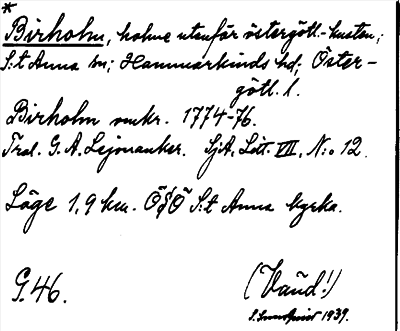 *
Birholm, holme utanför östergötl.-kusten;
S:t Anna sn; Hammarkinds hd; Öster-
götl. l.
Birholm omkr. 1774-76.
Trol. G. A. Lejonanker. SjA, Litt. VII, N:o 12.
Läge 1,9 km. ÖSÖ S:t Anna kyrka.
G.46. (Vand!)
1939.